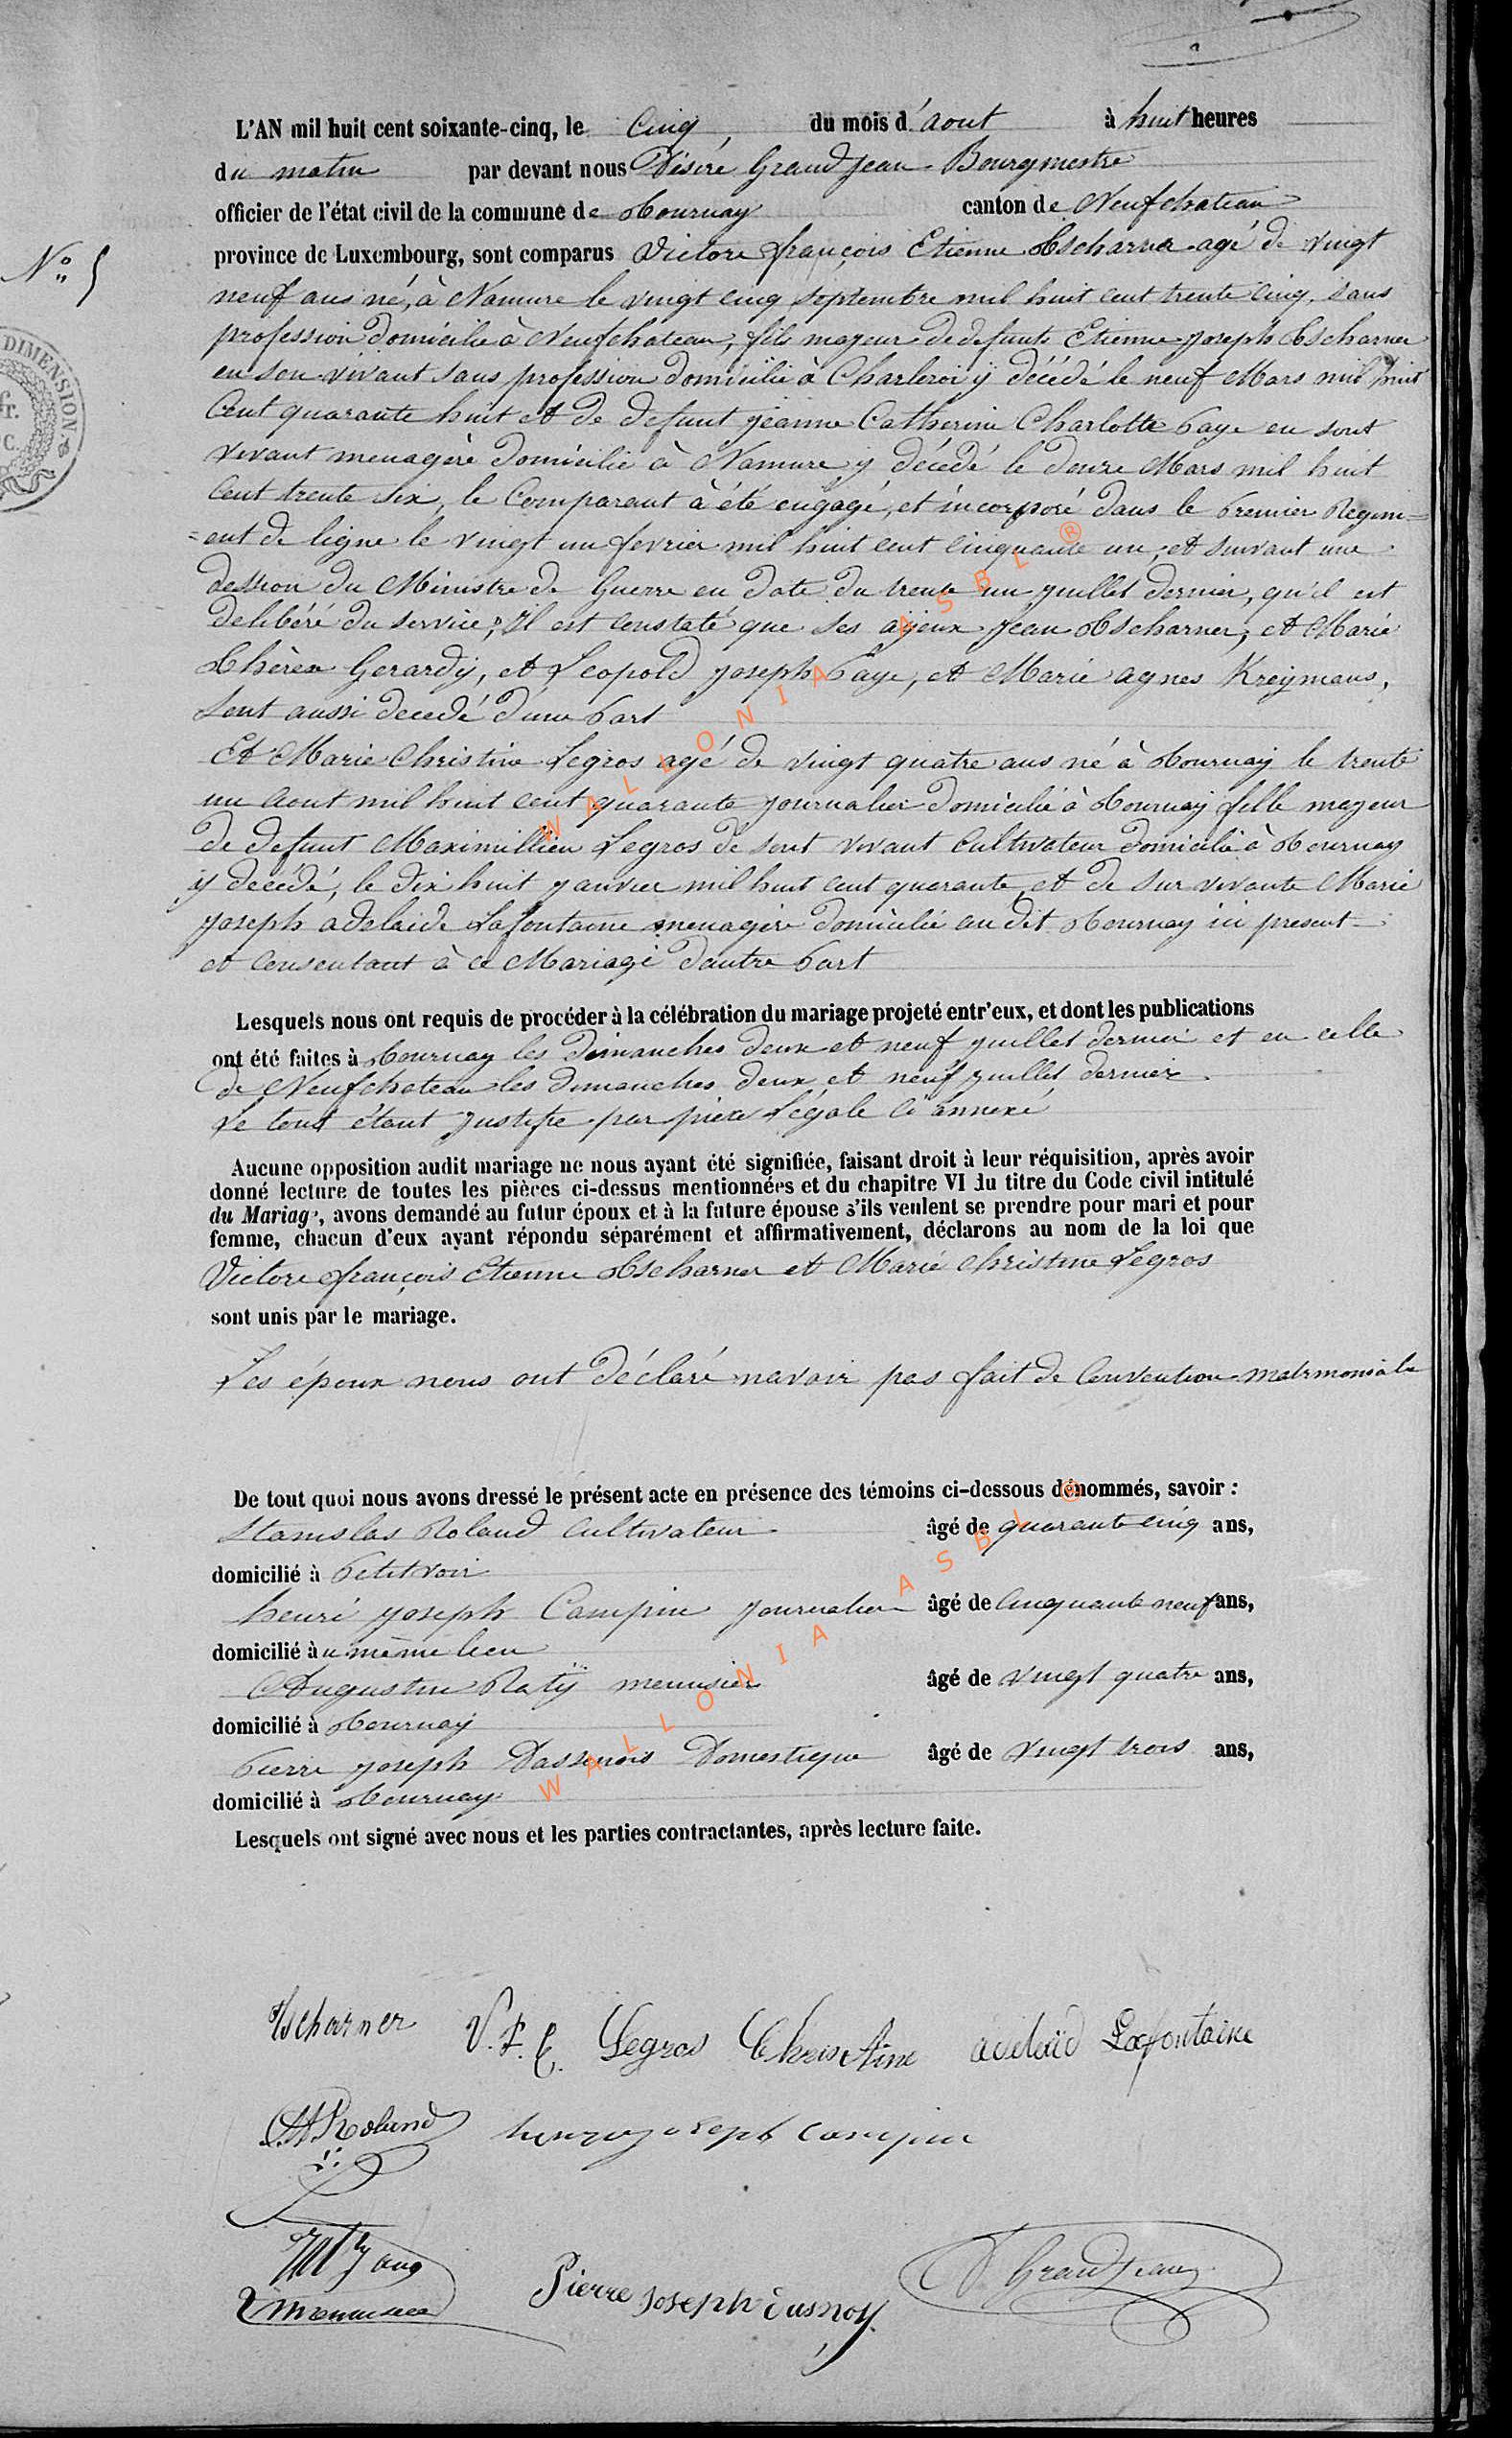 L'AN mil huit cent soixante-cinq, le Cinq, du mois d'aout à huit heures
du matin par devant nous Désiré Grandjean Bourgmestre
officier de l'état civil de la commune de Tournay canton de Neufchateau
N° 5
province de Luxembourg, sont comparus Victore françois Etienne Tscharner agé de vingt
neuf ans né, à Namure le vingt cinq septembre mil huit cent trente cinq, sans
profession domicilié à Neufchateau, fils majeur de defunt Etienne joseph Tscharner
DIMENSION
en son vivant sans profession domicilié à Charleroi ÿ décédé le neuf Mars mil huit
fr.
Cent quarante huit et de defunt jeanne Catherine Charlotte Paye en sont
C.
vivant menagère domicilié à Namure y décédé le douze Mars mil huit
Cent trente six, le Comparant à été engagé, et incorporé dans le Premier Regim=
=ent de ligne le vingt un fevrier mil huit cent cinquante un, et suivant une
dession du Ministre de Guerre en date du trente un juillet dernier, qu'il est
delibéré du service, Il est constaté que ses aÿeux Jean Tscharner, et Marie
Thèrèx Gerardÿ, et Leopold joseph Paye, et Marie agnes Kreymans,
sont aussi decedé d'une Part
Et Marie Christine Legros agé de vingt quatre ans né à Tournay le trente
un aout mil huit cent quarante journalier domicilié à Tournay fille majeur
de defunt Maximillien Legros de sont vivant Cultivateur domicilié à Tournay
ÿ decédé, le dix huit janvier mil huit cent quarante, et de sur vivante Marie
joseph adelaide Lafontaine menagère domicilié au dit Tournay ici present
et consentant à ce Mariage d'autre Part
Lesquels nous ont requis de procéder à la célébration du mariage projeté entr'eux, et dont les publications
ont été faites à Tournay les dimanches deux et neuf juillet dernier et en celle
de Neufchateau les dimanches deux et neuf juillet dernier
Le tout étant justifie par pièce Légale ci annexé
Aucune opposition audit mariage ne nous ayant été signifiée, faisant droit à leur réquisition, après avoir
donné lecture de toutes les pièces ci-dessus mentionnées et du chapitre VI du titre du Code civil intitulé
du Mariage, avons demandé au futur époux et à la future épouse s'ils veulent se prendre pour mari et pour
femme, chacun d'eux ayant répondu séparément et affirmativement, déclarons au nom de la loi que
Victore françois Etienne Tscharner et Marie Christine Legros
sont unis par le mariage.
Les époux nous ont déclaré navoir pas fait de Convention matrimoniale
De tout quoi nous avons dressé le présent acte en présence des témoins ci-dessous dénommés, savoir :
Stanislas Roland Cultivateur âgé de quarante cinq ans,
domicilié à Petitvoir
henri joseph Campine journalier âgé de Cinquante neuf ans,
domicilié au même lieu
Augustin Ratÿ menusier âgé de vingt quatre ans,
domicilié à Tournay
Pierre joseph Dassenois Domestique âgé de vingt trois ans,
domicilié à Tournay
Lesquels ont signé avec nous et les parties contractantes, après lecture faite.
WALLONIA ASBL ®
WALLONIA ASBL ®
Tscharner V. F. E. Legros Christine adelaïd Lafontaine
St Roland henry joseph campine
aug
Pierre joseph dusnoy
D. Grandjean
menusier